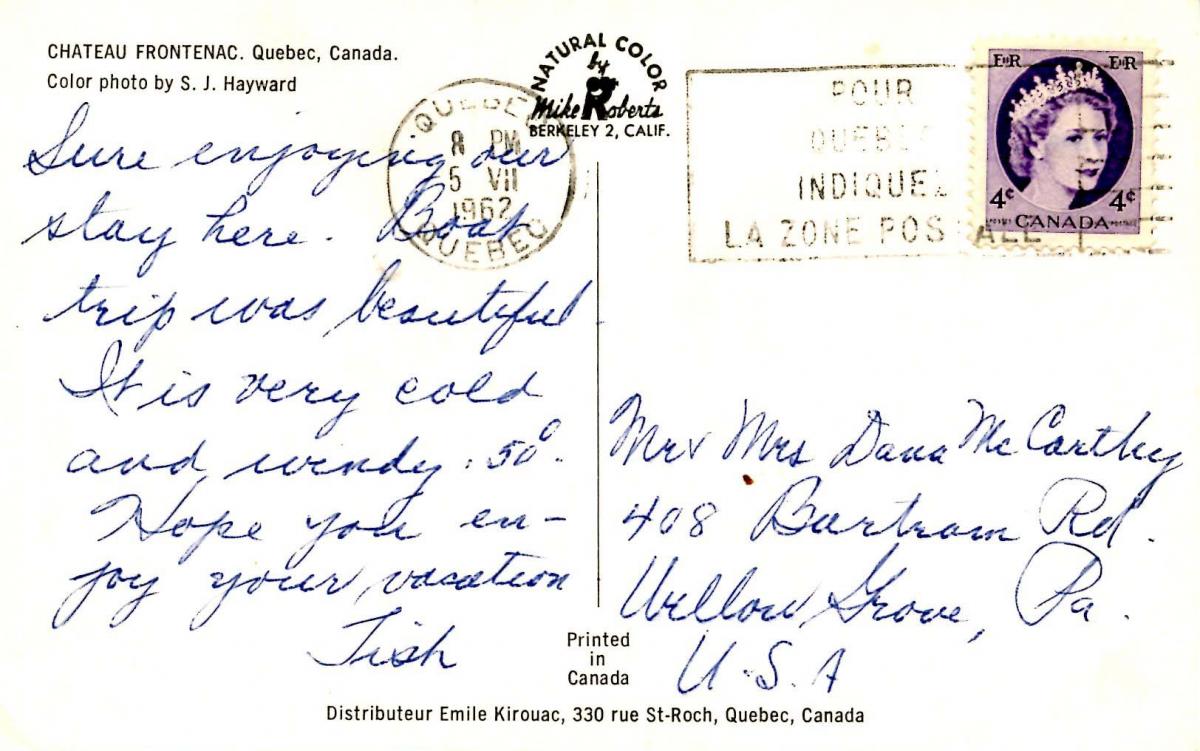 CHATEAU FRONTENAC. Quebec, Canada.
Color photo by S. J. Hayward
NATURAL COLOR
by
Mike Roberts
BERKELEY 2, CALIF.
QUEBEC
8 PM
5 VII
1962
QUEBEC
POUR
QUEBEC
INDIQUEZ
LA ZONE POSTALE
EIIR EIIR
4¢ 4¢
POSTES CANADA POSTAGE
Sure enjoying our
stay here. Boat
trip was beautiful.
It is very cold
and windy. 50°.
Hope you en-
joy your vacation
Tish
Mr & Mrs Dana McCarthy
408 Bartram Rd.
Willow Grove, Pa.
U.S.A
Printed
in
Canada
Distributeur Emile Kirouac, 330 rue St-Roch, Quebec, Canada